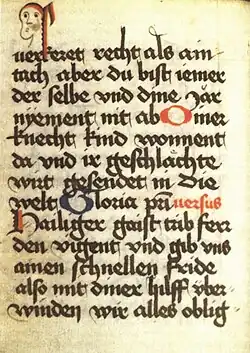 uerkeret recht als ain
tach aber du bist iemer
der selbe vnd dine Jar
nyement mit ab O iner
knecht kind wonnent
da vnd ir geschlächte
wirt gesendet in Die
welt Gloria pri uersus
Hailiger gaist trib ferr
den vigent vnd gib vns
ainen schnellen fride
also mit diner hilff vber
winden wir alles oblig